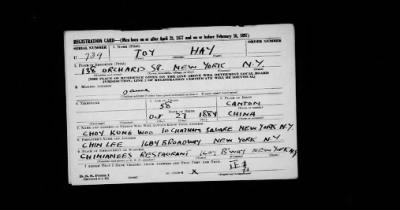 REGISTRATION CARD—(Men born on or after April 28, 1877 and on or before February 16, 1897)
SERIAL NUMBER 1. NAME (Print)
U 739 TOY HAY
2. PLACE OF RESIDENCE (Print)
138 ORCHARD ST. NEW YORK N.Y.
[THE PLACE OF RESIDENCE GIVEN ON THE LINE ABOVE WILL DETERMINE LOCAL BOARD
JURISDICTION; LINE 2 OF REGISTRATION CERTIFICATE WILL BE IDENTICAL]
3. MAILING ADDRESS
Same
4. TELEPHONE 5. AGE IN YEARS 6. PLACE OF BIRTH
58 CANTON
DATE OF BIRTH
OCT 27 1884 CHINA
7. NAME AND ADDRESS OF PERSON WHO WILL ALWAYS KNOW YOUR ADDRESS
CHOY KONG WOO 10 CHATHAM SQUARE NEW YORK N.Y.
8. EMPLOYER'S NAME AND ADDRESS
CHIN LEE BROADWAY NEW YORK N.Y.
9. PLACE OF EMPLOYMENT OR BUSINESS
RESTAURANT B'WAY NEW YORK N.Y.
I AFFIRM THAT I HAVE VERIFIED ABOVE ANSWERS AND THAT THEY ARE TRUE.
D. S. S. Form 1
X